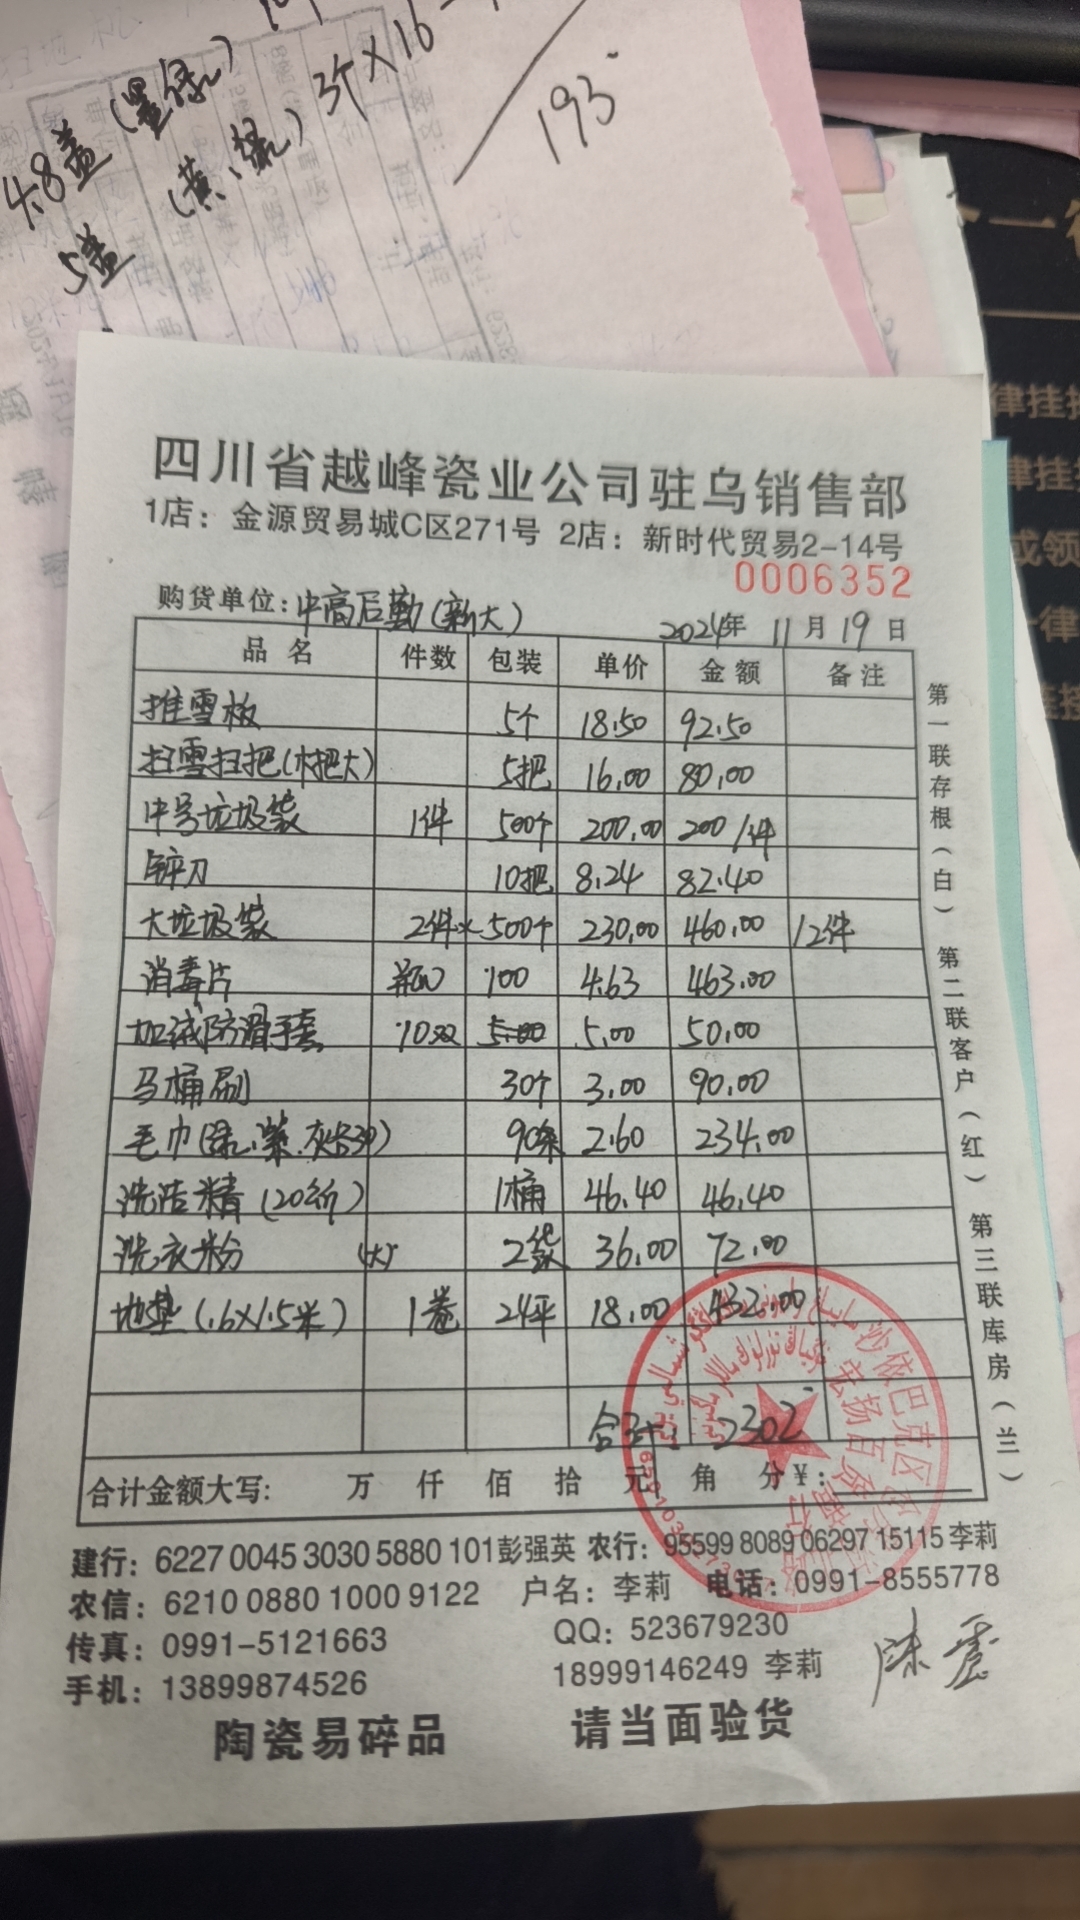 4.8盖(墨绿)
5盖(黄、绿)3个×16
193
四川省越峰瓷业公司驻乌销售部
1店：金源贸易城C区271号 2店：新时代贸易2-14号
0006352
购货单位：中高后勤(新大) 2024年 11月19日
品名 件数 包装 单价 金额 备注
推雪板 5个 18.50 92.50
扫雪扫把(木把大) 5把 16.00 80.00
中号垃圾袋 1件 500个 200.00 200/件
锌刀 10把 8.24 82.40
大垃圾袋 2件× 500个 230.00 460.00 12件
消毒片 瓶 100 4.63 463.00
加绒防滑手套 10双 5.00 5.00 50.00
马桶刷 30个 3.00 90.00
毛巾(绿、紫、灰各30) 90条 2.60 234.00
洗洁精(20斤) 1桶 46.40 46.40
洗衣粉 (大) 2袋 36.00 72.00
地垫(1.6×1.5米) 1卷 24平 18.00 432.00
合计：2302
合计金额大写： 万 仟 佰 拾 元 角 分￥：
第一联存根(白) 第二联客户(红) 第三联库房(兰)
沙依巴克区
建行：6227 0045 3030 5880 101彭强英 农行：95599 8089 06297 15115 李莉
农信：6210 0880 1000 9122 户名：李莉 电话：0991-8555778
传真：0991-5121663 QQ：523679230
手机：13899874526 18999146249 李莉
陶瓷易碎品 请当面验货
一律挂
律挂
或领
一律